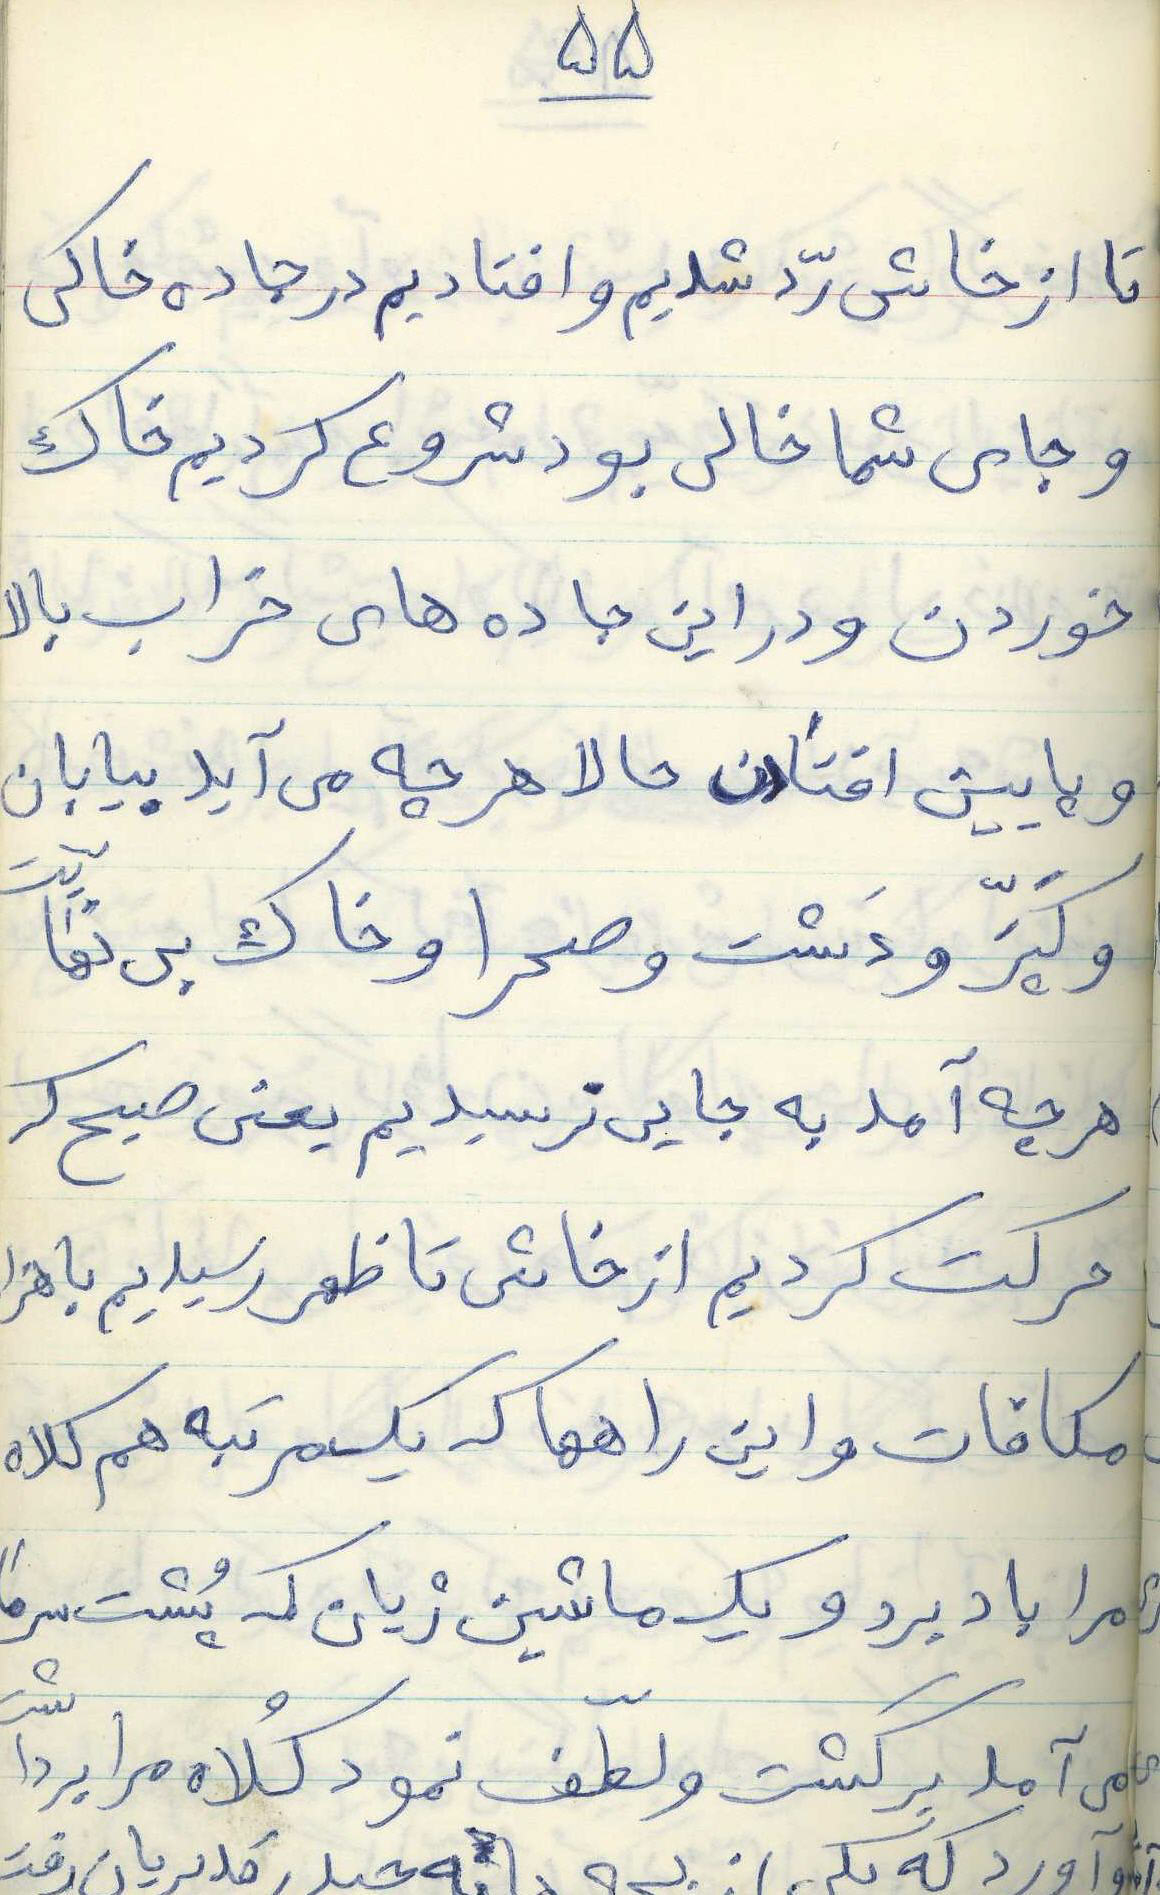 ۵۵
تا از خاش ردّ شدیم و افتادیم در جاده خاکی
و جای شما خالی بود شروع کردیم خاک
خوردن و در این جاده های خراب بالا
و پایین افتادن حالا هر چه می آید بیابان
و کَپَّر و دَشت و صحرا و خاک بی نهایت
هر چه آمد به جایی نرسیدیم یعنی صبح که
حرکت کردیم از خاش تا ظهر رسیدیم با هزار
مکافات و این راهها که یک مرتبه هم کلاه
مرا باد برد و یک ماشین ژیان که پُشت سر ما
می آمد برگشت و لطف نمود کُلاه مرا برداشت
آورد که یکی از بچه